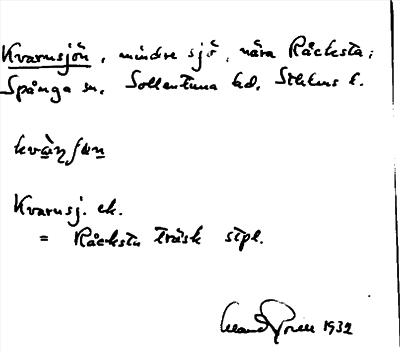 Kvarnsjön, mindre sjö, nära Råcksta i
Spånga sn, Sollentuna hd, Sthlms l.
Kvarnsj. ek.
= Råcksta träsk stpl.
1932